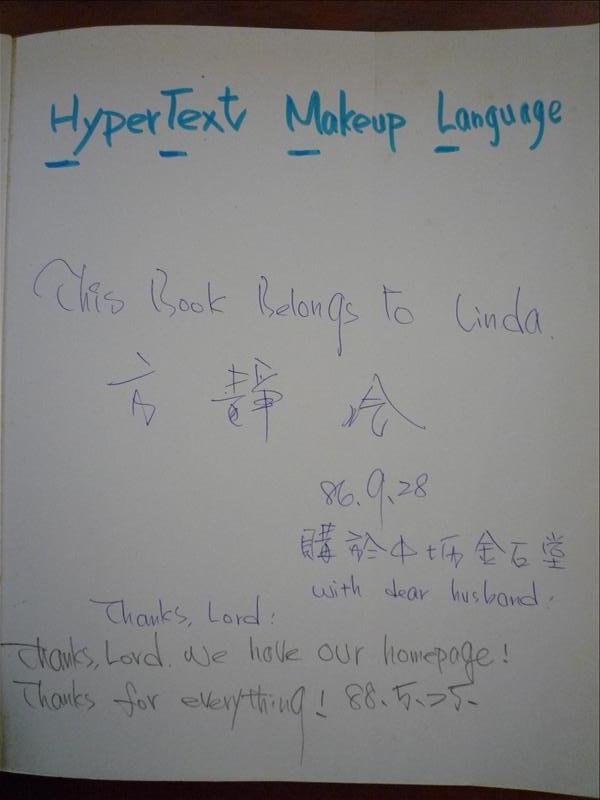 HyperText Makeup Language
This Book Belongs To Linda.
方 靜
86.9.28
購於中坜金石堂
with dear husband.
Thanks, Lord!
Thanks, Lord. We have our homepage!
Thanks for everything! 88.5.25.